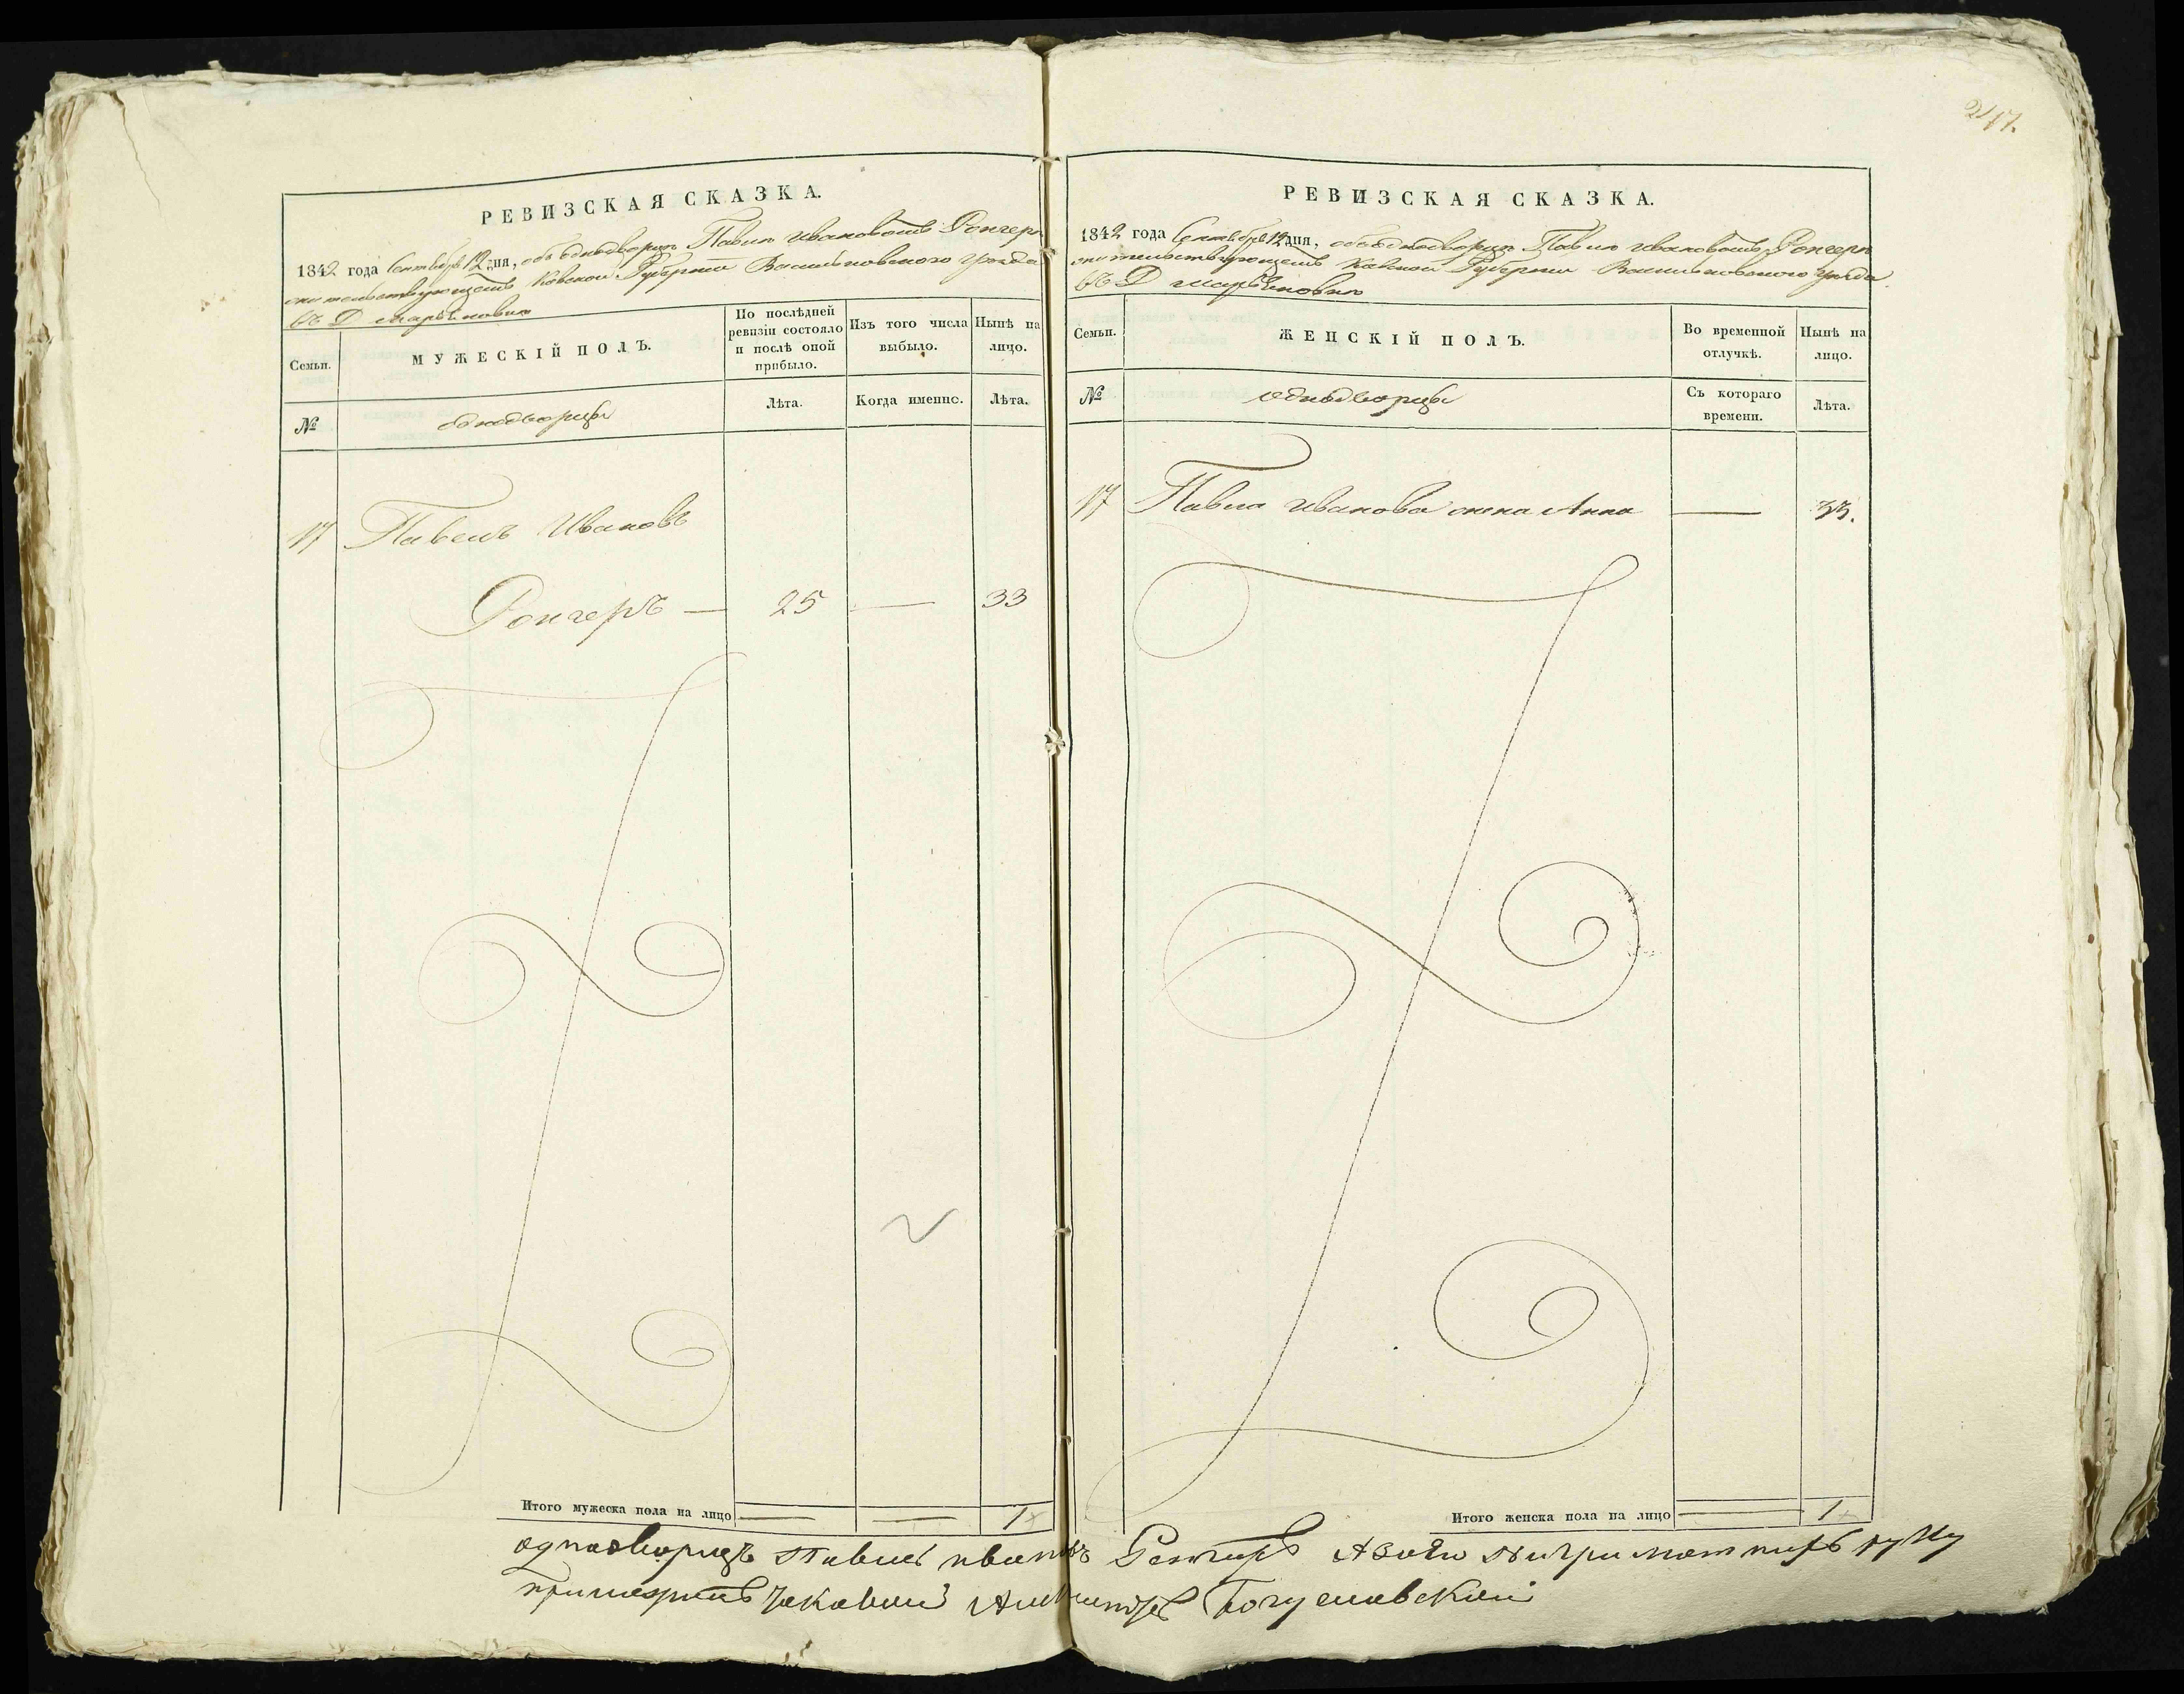 247.
РЕВИЗСКАЯ СКАЗКА.
1842 года Сентября 12 дня, объ однодворцѣ Павлѣ Ивановомъ Ронгерѣ
жительствующемъ Кіевской Губерніи Васильковскаго уѣзда
въ Д
Семьи.
МУЖЕСКІЙ ПОЛЪ.
По послѣдней ревизіи состояло и послѣ оной прибыло.
Изъ того числа выбыло.
Нынѣ на лицо.
№
однодворцы
Лѣта.
Когда именно.
Лѣта.
17 Павелъ Ивановъ
Ронгеръ — 25 — 33
Итого мужеска пола на лицо — — 1
РЕВИЗСКАЯ СКАЗКА.
1842 года Сентября 12 дня, объ однодворцѣ Павлѣ Ивановомъ Ронгерѣ
жительствующемъ Кіевской Губерніи Васильковскаго уѣзда
въ Д
Семьи.
ЖЕНСКІЙ ПОЛЪ.
Во временной отлучкѣ.
Нынѣ на лицо.
№
однодворцы
Съ котораго времени.
Лѣта.
17 Павла Иванова жена Анна — 33.
Итого женска пола на лицо — 1
однодворецъ Павелъ Ивановъ руку
Богуславский